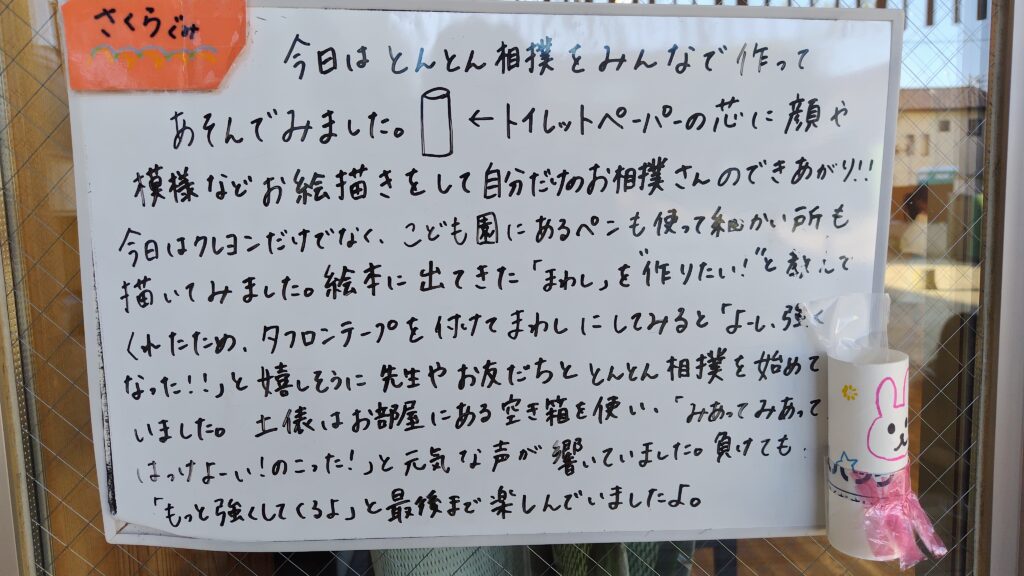 さくらぐみ
今日はとんとん相撲をみんなで作って
あそんでみました。 ←トイレットペーパーの芯に顔や
模様などお絵描きをして自分だけのお相撲さんのできあがり!!
今日はクレヨンだけでなく、こども園にあるペンも使って細かい所も
描いてみました。絵本に出てきた「まわし」を"作りたい!"と教えて
くれたため、タフロンテープを付けてまわしにしてみると「よーし、強く
なった!!」と嬉しそうに先生やお友だちととんとん相撲を始めて
いました。土俵はお部屋にある空き箱を使い、「みあってみあって
はっけよーい!のこった!」と元気な声が響いていました。負けても
「もっと強くしてくるよ」と最後まで楽しんでいましたよ。